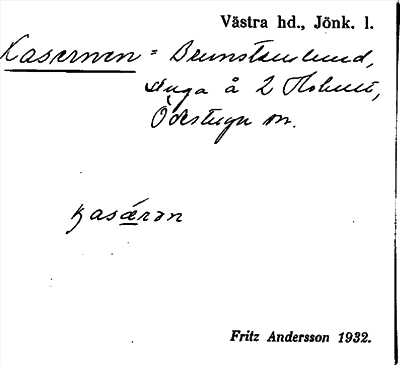 Västra hd., Jönk. l.
Kasernen = Brunstaslund,
stuga å 2 Holmen,
Ödestugu sn.
kasǽrən
Fritz Andersson 1932.